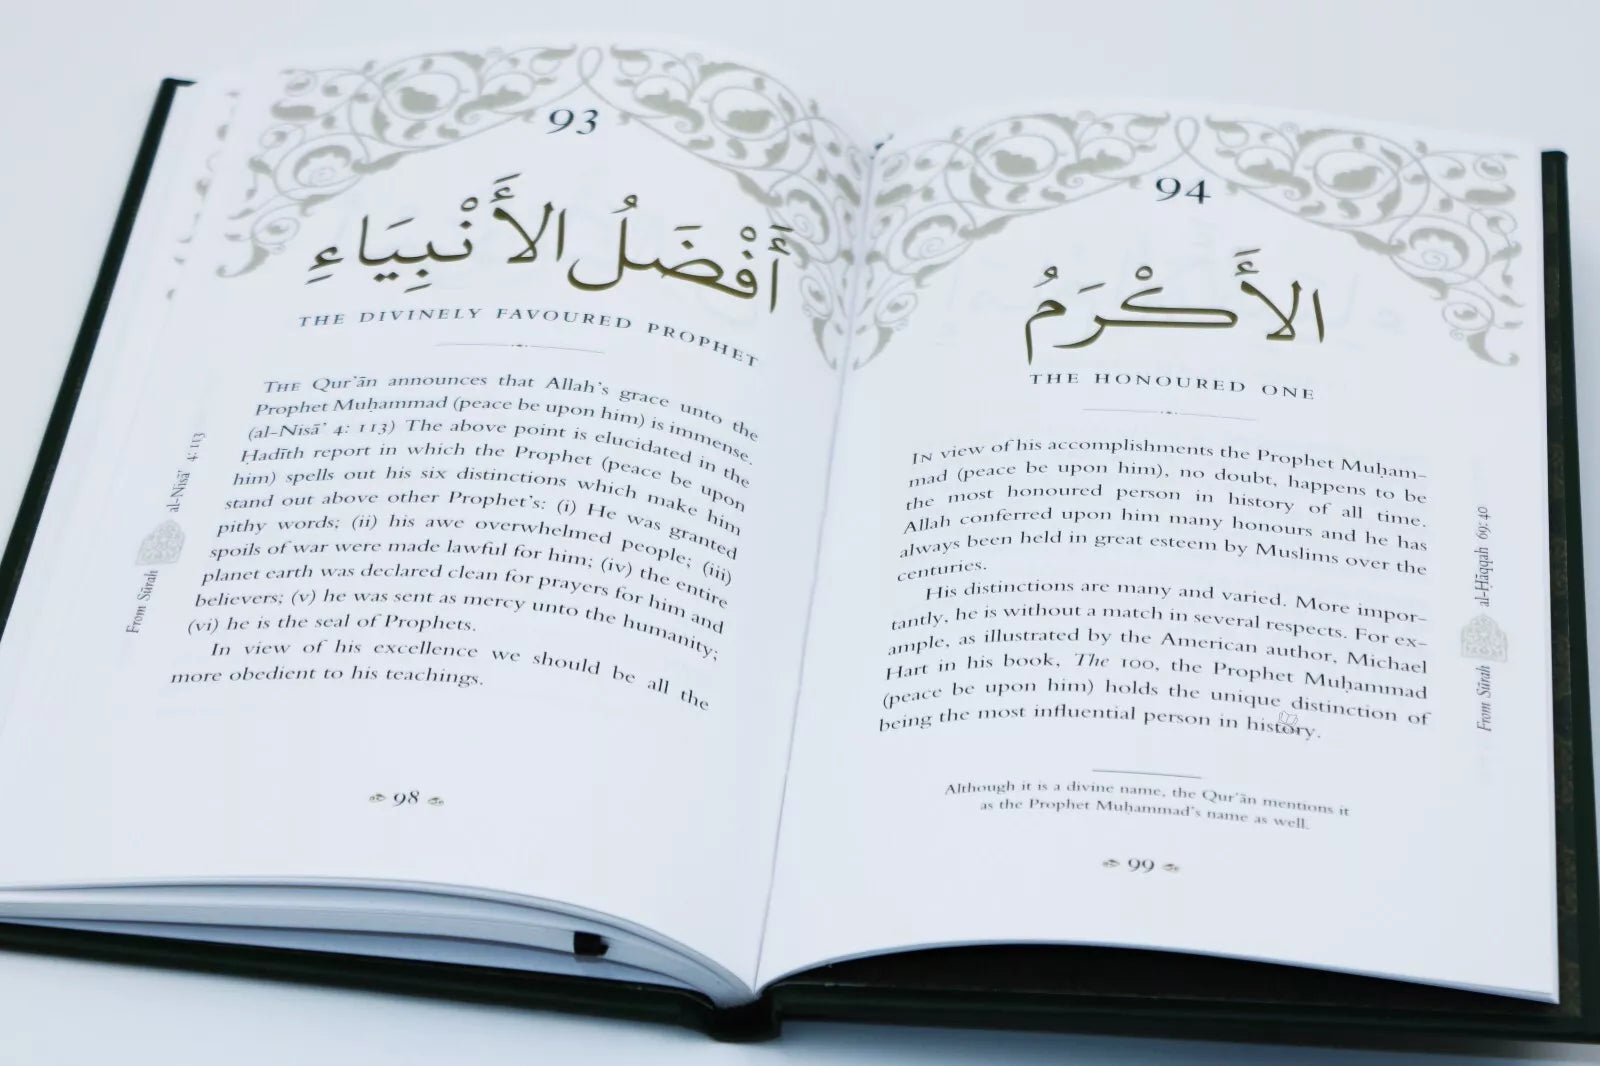 93
أَفْضَلُ الأَنْبِيَاءِ
THE DIVINELY FAVOURED PROPHET
THE Qur'ān announces that Allah's grace unto the
Prophet Muḥammad (peace be upon him) is immense.
(al-Nisā' 4: 113) The above point is elucidated in the
Ḥadīth report in which the Prophet (peace be upon
him) spells out his six distinctions which make him
stand out above other Prophet's: (i) He was granted
pithy words; (ii) his awe overwhelmed people; (iii)
spoils of war were made lawful for him; (iv) the entire
planet earth was declared clean for prayers for him and
believers; (v) he was sent as mercy unto the humanity;
(vi) he is the seal of Prophets.
In view of his excellence we should be all the
more obedient to his teachings.
From Sūrah al-Nisā' 4: 113
98
94
الأَكْرَمُ
THE HONOURED ONE
IN view of his accomplishments the Prophet Muḥam-
mad (peace be upon him), no doubt, happens to be
the most honoured person in history of all time.
Allah conferred upon him many honours and he has
always been held in great esteem by Muslims over the
centuries.
His distinctions are many and varied. More impor-
tantly, he is without a match in several respects. For ex-
ample, as illustrated by the American author, Michael
Hart in his book, The 100, the Prophet Muḥammad
(peace be upon him) holds the unique distinction of
being the most influential person in history.
From Sūrah al-Ḥāqqah 69: 40
Although it is a divine name, the Qur'ān mentions it
as the Prophet Muḥammad's name as well.
99